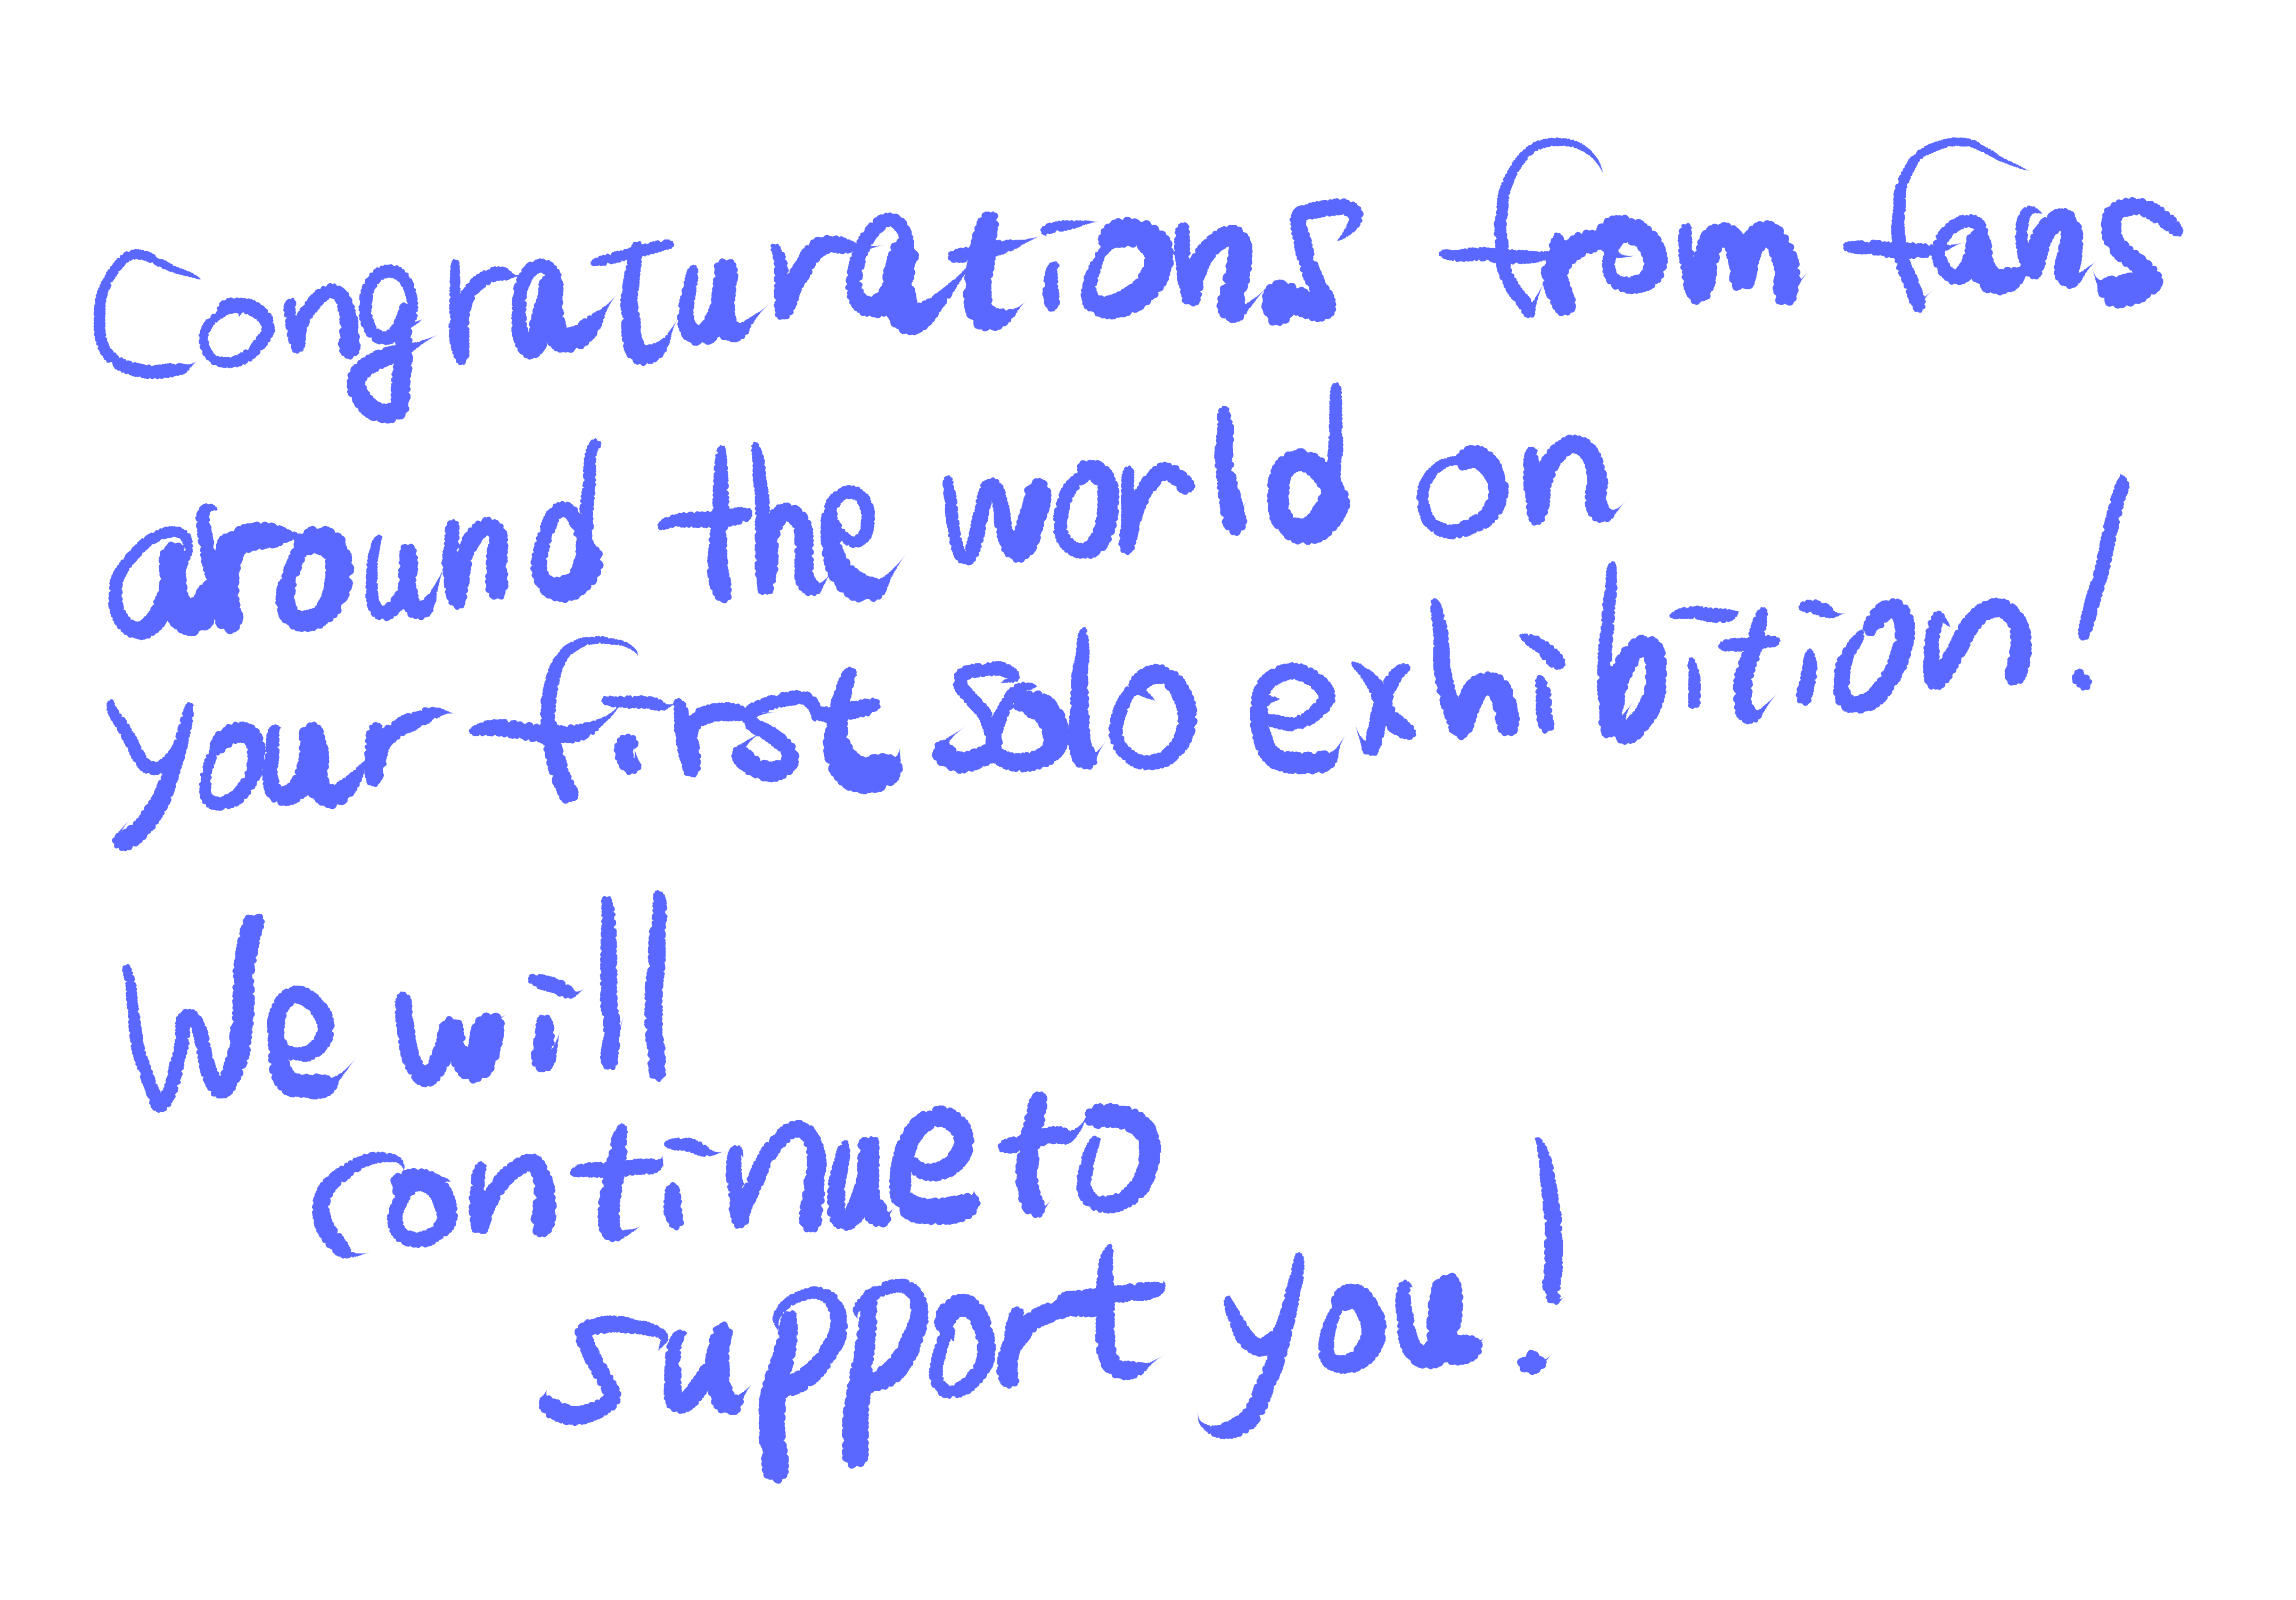 Congraturations from fans
around the world on
your first solo exhibition!
We will
continue to
support you!